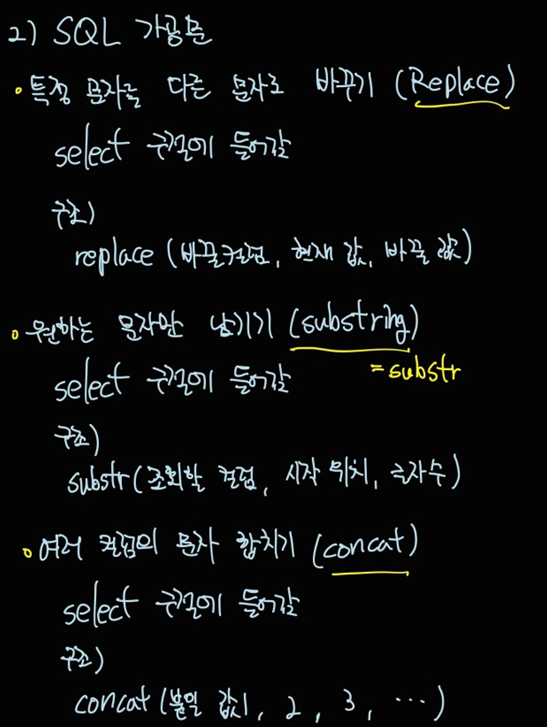 2) SQL 가공문
• 특정 문자를 다른 문자로 바꾸기 (Replace)
select 구절에 들어감
구조)
replace (바꿀컬럼, 현재 값, 바꿀 값)
• 원하는 문자만 남기기 (substring)
= substr
select 구절에 들어감
구조)
substr (조회할 컬럼, 시작 위치, 글자수)
• 여러 컬럼의 문자 합치기 (concat)
select 구절에 들어감
구조)
concat (붙일 값1, 2, 3, ...)